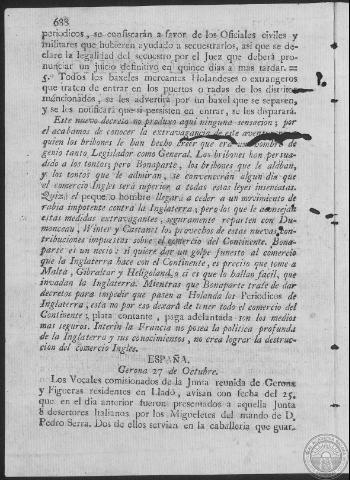 688
periodicos, se confiscarán a favor de los Oficiales civiles y
militares que hubieren ayudado a secuestrarlos, asi que se de-
clare la legalidad del secuestro por el Juez que deberá pro-
nunciar un juicio definitivo en quince dias a mas tardar. =
5.º Todos los baxeles mercantes Holandeses o extrangeros
que traten de entrar en los puertos o radas de los distritos
mencionados, se les advertirá por un baxel que se separen,
y se les notificará que si persisten en entrar, se les disparará.
Este nuevo decreto no produxo aqui ninguna sensacion; por
el acabamos de conocer la extravagancia de este
quien los bribones le han hecho creer que era un hombre de
genio tanto Legislador como General. Los bribones han persua-
dido a los tontos; pero Bonaparte, los bribones que le alaban,
y los tontos que le admiran, se convencerán algun dia que
el comercio Ingles será superior a todas estas leyes insensatas.
Quizá el pequeño hombre llegará a ceder a un movimiento de
rabia impotente contra la Inglaterra; pero los que le aconsejan
estas medidas extravagantes, seguramente reparten con Du-
monceau, Winter y Cattanet los provechos de estas nuevas con-
tribuciones impuestas sobre el comercio del Continente. Bona-
parte es un necio: si quiere dar un golpe funesto al comercio
que la Inglaterra hace con el Continente, es preciso que tome a
Malta, Gibraltar y Heligoland, o si es que lo hallan facil, que
invadan la Inglaterra. Mientras que Bonaparte trate de dar
decretos para impedir que pasen a Holanda los Periodicos de
Inglaterra, esta no por eso dexará de tener todo el comercio del
Continente; plata contante, paga adelantada son los medios
mas seguros. Interin la Francia no posea la politica profunda
de la Inglaterra y sus conocimientos, no crea lograr la destruc-
cion del comercio Ingles.
ESPAÑA.
Gerona 27 de Octubre.
Los Vocales comisionados de la Junta reunida de Gerona
y Figueras residentes en Lladó, avisan con fecha del 25.
que en el dia anterior fueron presentados a aquella Junta
8 desertores Italianos por los Migueletes del mando de D.
Pedro Serra. Dos de ellos servian en la caballeria que guar-